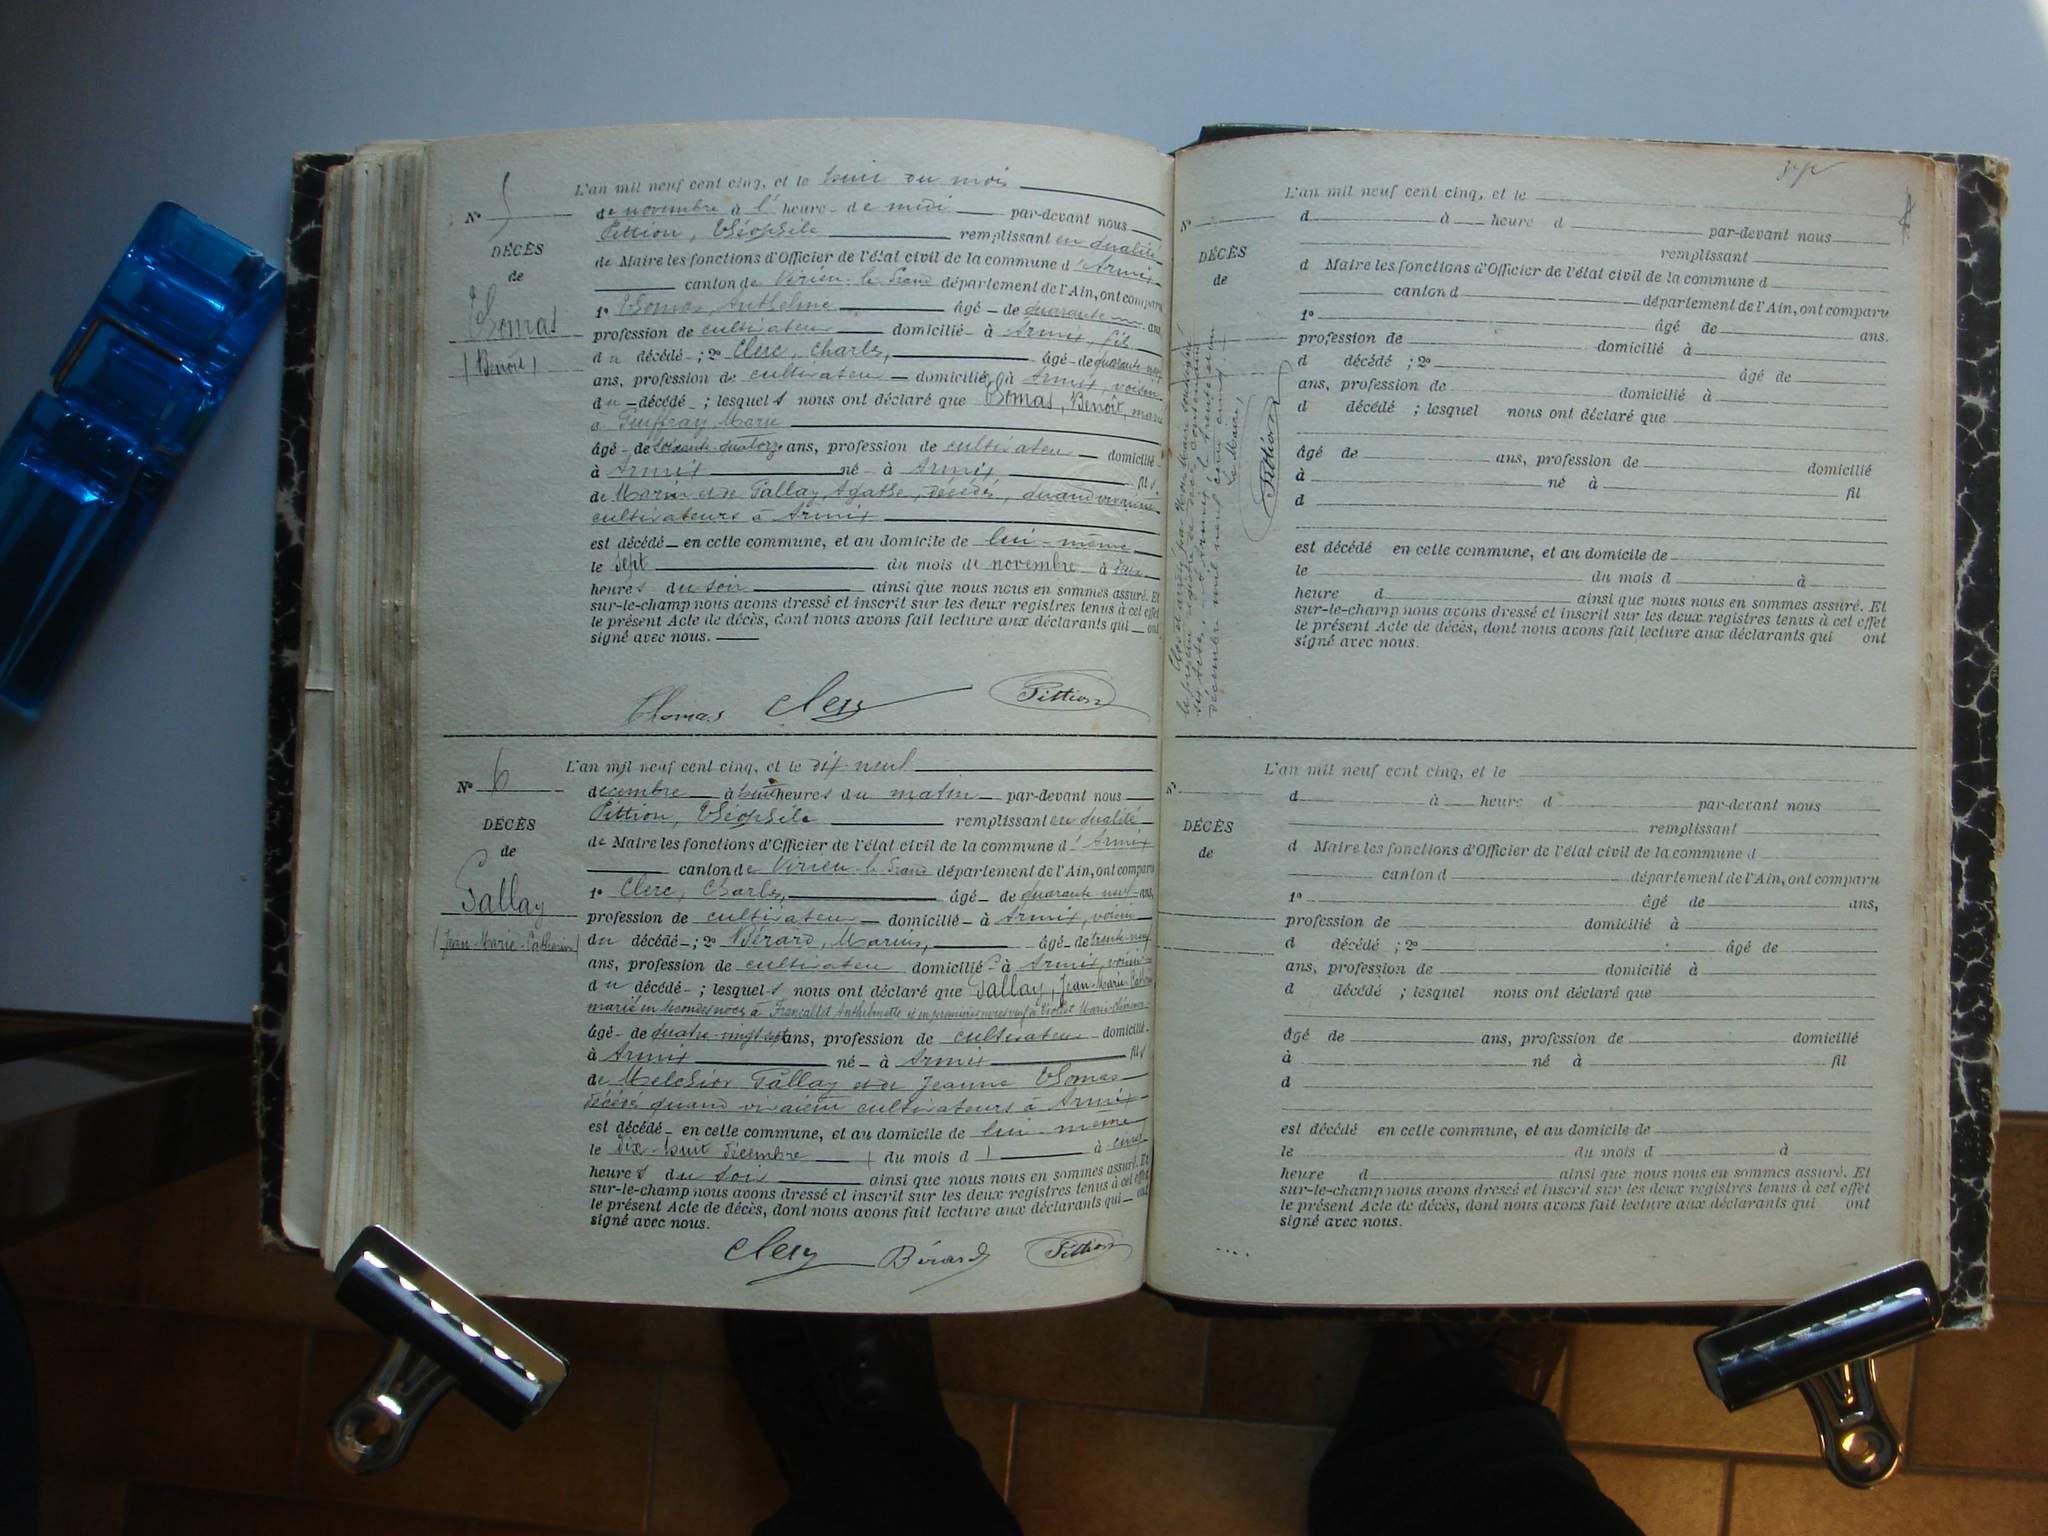 N° 5
DÉCÈS
de
Thomas
(Benoît)
L'an mil neuf cent cinq, et le huit du mois
de novembre à l' heure de midi par-devant nous
Pittion, Théophile remplissant en qualité
de Maire les fonctions d'Officier de l'état civil de la commune d'Armix
canton de Virieu-le-Grand département de l'Ain, ont comparu
1° Thomas, Anthelme âgé de quarante ans,
profession de cultivateur domicilié à Armix, fils
du décédé ; 2° Clerc, Charles, âgé de quarante-neuf
ans, profession de cultivateur domicilié à Armix, voisin
du décédé ; lesquels nous ont déclaré que Thomas, Benoît, marié
à Marie
âgé de soixante-quatorze ans, profession de cultivateur domicilié
à Armix né à Armix fils
de Marin et de Pallay, Agathe, décédés, quand vivaient
cultivateurs à Armix
est décédé en cette commune, et au domicile de lui-même
le sept du mois de novembre à
heures du soir ainsi que nous nous en sommes assuré. Et
sur-le-champ nous avons dressé et inscrit sur les deux registres tenus à cet effet
le présent Acte de décès, dont nous avons fait lecture aux déclarants qui ont
signé avec nous.
Thomas Clerc Pittion
N° 6
DÉCÈS
de
Pallay
(Jean-Marie-Catherin)
L'an mil neuf cent cinq, et le dix-neuf
décembre à huit heures du matin par-devant nous
Pittion, Théophile remplissant en qualité
de Maire les fonctions d'Officier de l'état civil de la commune d'Armix
canton de Virieu-le-Grand département de l'Ain, ont comparu
1° Clerc, Charles, âgé de quarante-neuf ans,
profession de cultivateur domicilié à Armix, voisin
du décédé ; 2° Bérard, Marius, âgé de trente-neuf
ans, profession de cultivateur domicilié à Armix, voisin
du décédé ; lesquels nous ont déclaré que Pallay, Jean-Marie-Catherin
marié en secondes noces à Francallet Anthelmette et en premières noces veuf à Marie
âgé de quatre-vingt-sept ans, profession de cultivateur domicilié
à Armix né à Armix fils
de Melchior Pallay et de Jeanne Thomas
décédés quand vivaient cultivateurs à Armix
est décédé en cette commune, et au domicile de lui-même
le dix-huit décembre ( du mois d ) à cinq
heures du soir ainsi que nous nous en sommes assuré. Et
sur-le-champ nous avons dressé et inscrit sur les deux registres tenus à cet effet
le présent Acte de décès, dont nous avons fait lecture aux déclarants qui ont
signé avec nous.
Clerc Bérard Pittion
Clos et arrêté par Nous Maire soussigné,
le présent registre de décès contenant
six actes. à Armix le trente et un
décembre mil neuf cent cinq
Le Maire,
Pittion
N°
DÉCÈS
de
L'an mil neuf cent cinq, et le
d à heure d par-devant nous
remplissant
d Maire les fonctions d'Officier de l'état civil de la commune d
canton d département de l'Ain, ont comparu
1° âgé de ans.
profession de domicilié à
d décédé ; 2° âgé de
ans, profession de domicilié à
d décédé ; lesquel nous ont déclaré que
âgé de ans, profession de domicilié
à né à fil
d
est décédé en cette commune, et au domicile de
le du mois d à
heure d ainsi que nous nous en sommes assuré. Et
sur-le-champ nous avons dressé et inscrit sur les deux registres tenus à cet effet
le présent Acte de décès, dont nous avons fait lecture aux déclarants qui ont
signé avec nous.
N°
DÉCÈS
de
L'an mil neuf cent cinq, et le
d à heure d par-devant nous
remplissant
d Maire les fonctions d'Officier de l'état civil de la commune d
canton d département de l'Ain, ont comparu
1° âgé de ans,
profession de domicilié à
d décédé ; 2° âgé de
ans, profession de domicilié à
d décédé ; lesquel nous ont déclaré que
âgé de ans, profession de domicilié
à né à fil
d
est décédé en cette commune, et au domicile de
le du mois d à
heure d ainsi que nous nous en sommes assuré. Et
sur-le-champ nous avons dressé et inscrit sur les deux registres tenus à cet effet
le présent Acte de décès, dont nous avons fait lecture aux déclarants qui ont
signé avec nous.